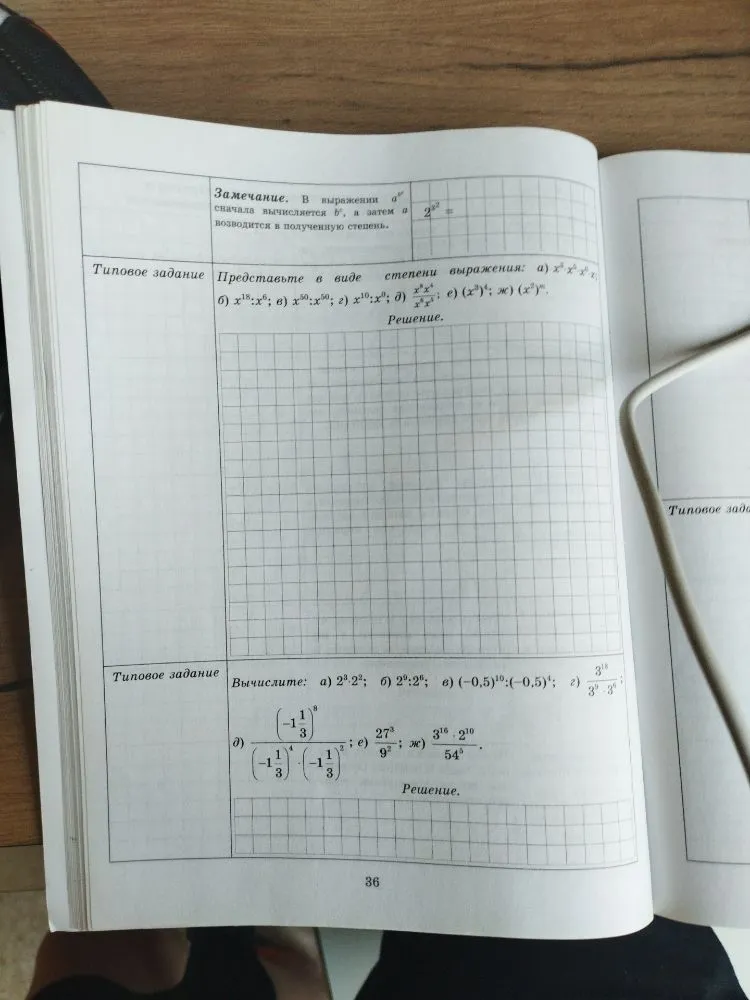 Замечание. В выражении a^{b^c}
сначала вычисляется b^c, а затем a
возводится в полученную степень.
2^{2^2} =
Типовое задание
Представьте в виде степени выражения: а)
б) x^{18}:x^6; в) x^{50}:x^{50}; г) x^{10}:x^0; д) \frac{x^8x^4}{x^6x^5}; е) (x^3)^4; ж) (x^2)^n.
Решение.
Типовое задание
Вычислите: а) 2^3·2^2; б) 2^9:2^6; в) (−0,5)^{10}:(−0,5)^4; г) \frac{3^{18}}{3^9 · 3^6};
д) \frac{(−1\frac{1}{3})^8}{(−1\frac{1}{3})^4 · (−1\frac{1}{3})^2}; е) \frac{27^3}{9^2}; ж) \frac{3^{16} · 2^{10}}{54^5}.
Решение.
36
Типовое